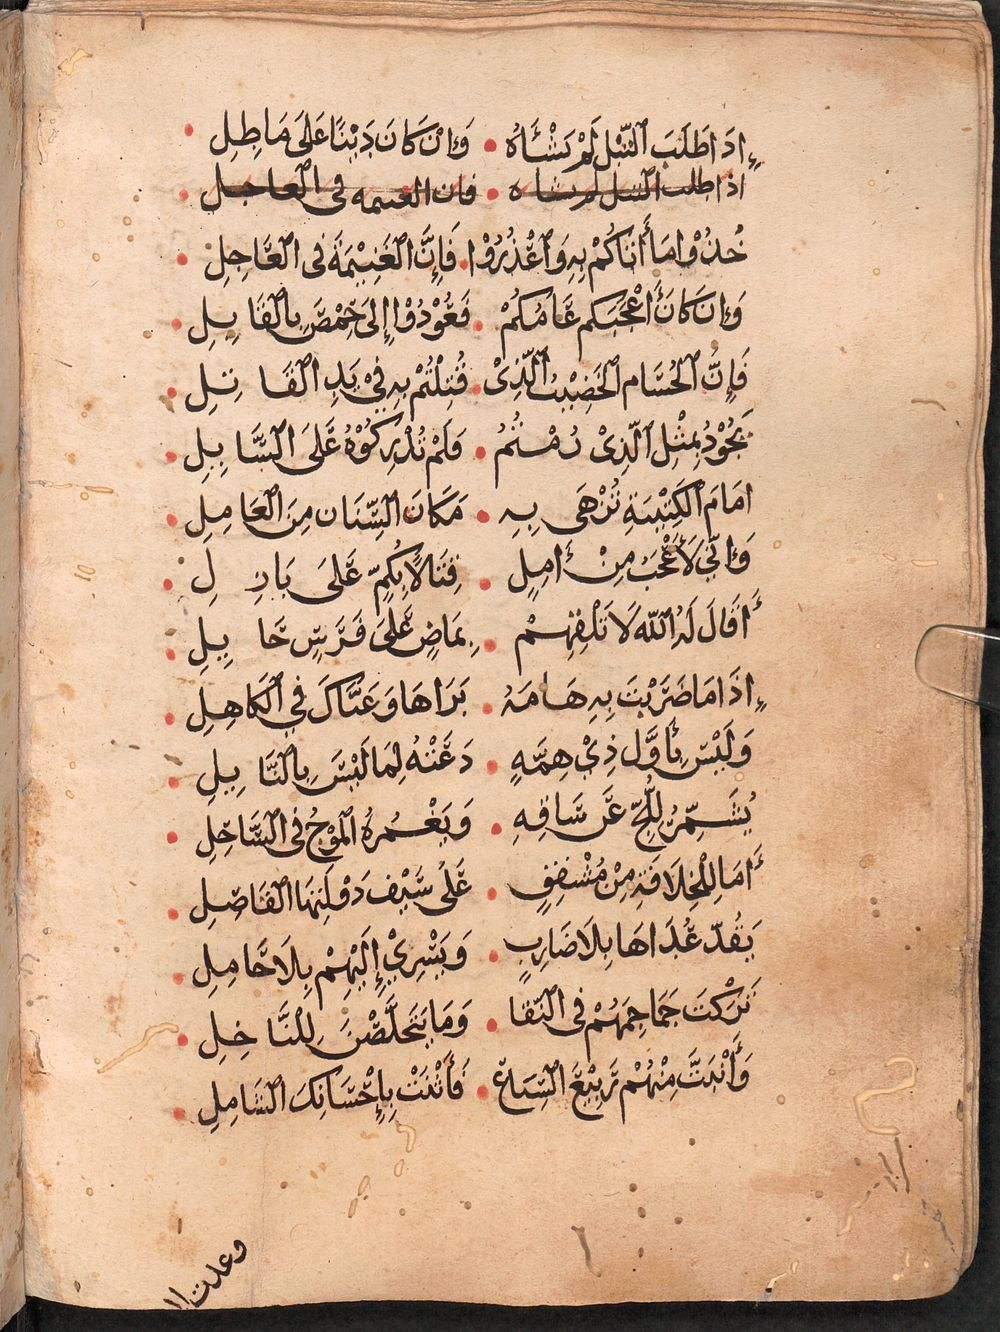 إِذَا طَلَبَ التَّبْلَ لَمْ يَشْأَهُ • وَإِنْ كَانَ دَيْنًا عَلَى مَاطِلِ •
اذا طلب التبل لم يشاه • فان الغنيمه فى العاجل •
خُذُوْا مَا أَتَاكُمْ بِهِ وَاعْذُرُوْا • فَإِنَّ الْغَنِيْمَةَ فى الْعَاجِلِ •
وَإِنْ كَانَ أَعْجَبَكم عَامُكُمْ • فَعُوْدُوْا إِلَى حِمْصَ بِالْقَابِلِ •
فَإِنَّ الْحُسَام الْخَضِيْبَ الَّذِىْ • قُتِلْتُمْ بِهِ فِيْ يَدِ الْقَاتِلِ •
يَجُوْدُ بِمِثْلِ الَّذِىْ رُمْتُمُ • وَلَمْ تُدْرِكُوْهُ عَلَى السَّايِلِ •
امَامَ الْكَتِيْبَةِ تُزْهَى بِهِ • مَكَانَ السِّنَان مِنَ الْعَامِلِ •
وَإِنِّي لَأَعْجَبُ مِنْ أَمِلٍ • قِتَالًا بِكُمٍّ عَلَى بَازِلِ •
أَقَالَ لَهُ اللّٰه لَا تَلْقِهِمْ • بِمَاضٍ عَلَى فَرَسٍ حَايِلِ •
إِذَا مَا ضَرَبْتَ بِهِ هَامَهُ • بَرَاهَا وَغَنَّاكَ فِي الْكَاهِلِ •
وَلَيْسَ بِأَوَّل ذِيْ هِمَّهٍ • دَعَتْهُ لِمَا لَيْسَ بِالنَّايِلِ •
يُشَمِّرُ لِلُّجِّ عَن سَاقِهِ • وَيَغْمُرهُ الْمَوْجُ فى السَّاحِلِ •
أَمَا لِلْخِلَافَةِ مِنْ مُشْفِقٍ • عَلَى سَيْفِ دَوْلَتِهَا الْفَاصِلِ •
يَقُدّ عُدَاهَا بِلَا ضَارِبٍ • وَيَسْرِيْ إِلَيْهِمْ بِلَا حَامِلِ •
تَرَكْتَ جَمَاجِمَهُمْ فى النَقَا • وَمَا يَتَخَلَّصْنَ لِلنَّاخِلِ •
وَأَنْبَتَّ مِنْهُمْ رَبِيْعَ السِّبَاعِ • فَأَثْنَتْ بِإِحْسَانِكَ الشَامِلِ •
وعدت ا